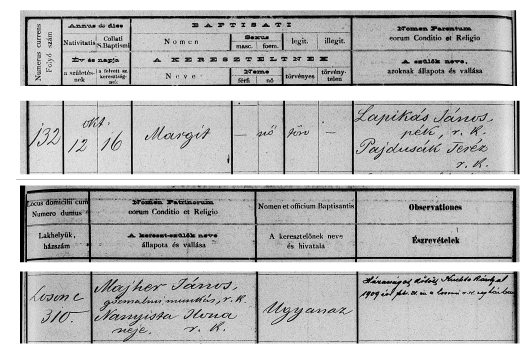 Numerus currens
Folyó szám
Annus et dies
Nativitatis
Collati
S. Baptismi
Év és napja
a születés-
nek
a felvett sz.
keresztség-
nek
BAPTISATI
Nomen
Sexus
masc.
foem.
legit.
illegit.
A KERESZTELTNEK
Neve
Neme
férfi
nő
törvényes
törvény-
telen
Nomen Parentum
eorum Conditio et Religio
A szülők neve,
azoknak állapota és vallása
132
okt.
12
16
Margit
—
nő
törv
—
Lapikás János,
pék, r. k.
Pajdusák Teréz
r. k.
Locus domicilii cum
Numero domus
Lakhelyük,
házszám
Nomen Patrinorum
eorum Conditio et Religio
A keresztszülők neve
állapota és vallása
Nomen et officium Baptisantis
A keresztelőnek neve
és hivatala
Observationes
Észrevételek
Losonc
310.
Majher János,
gyármunkás, r. k.
Ilona
neje. r. k.
Ugyanaz
Házasságot kötött
1909